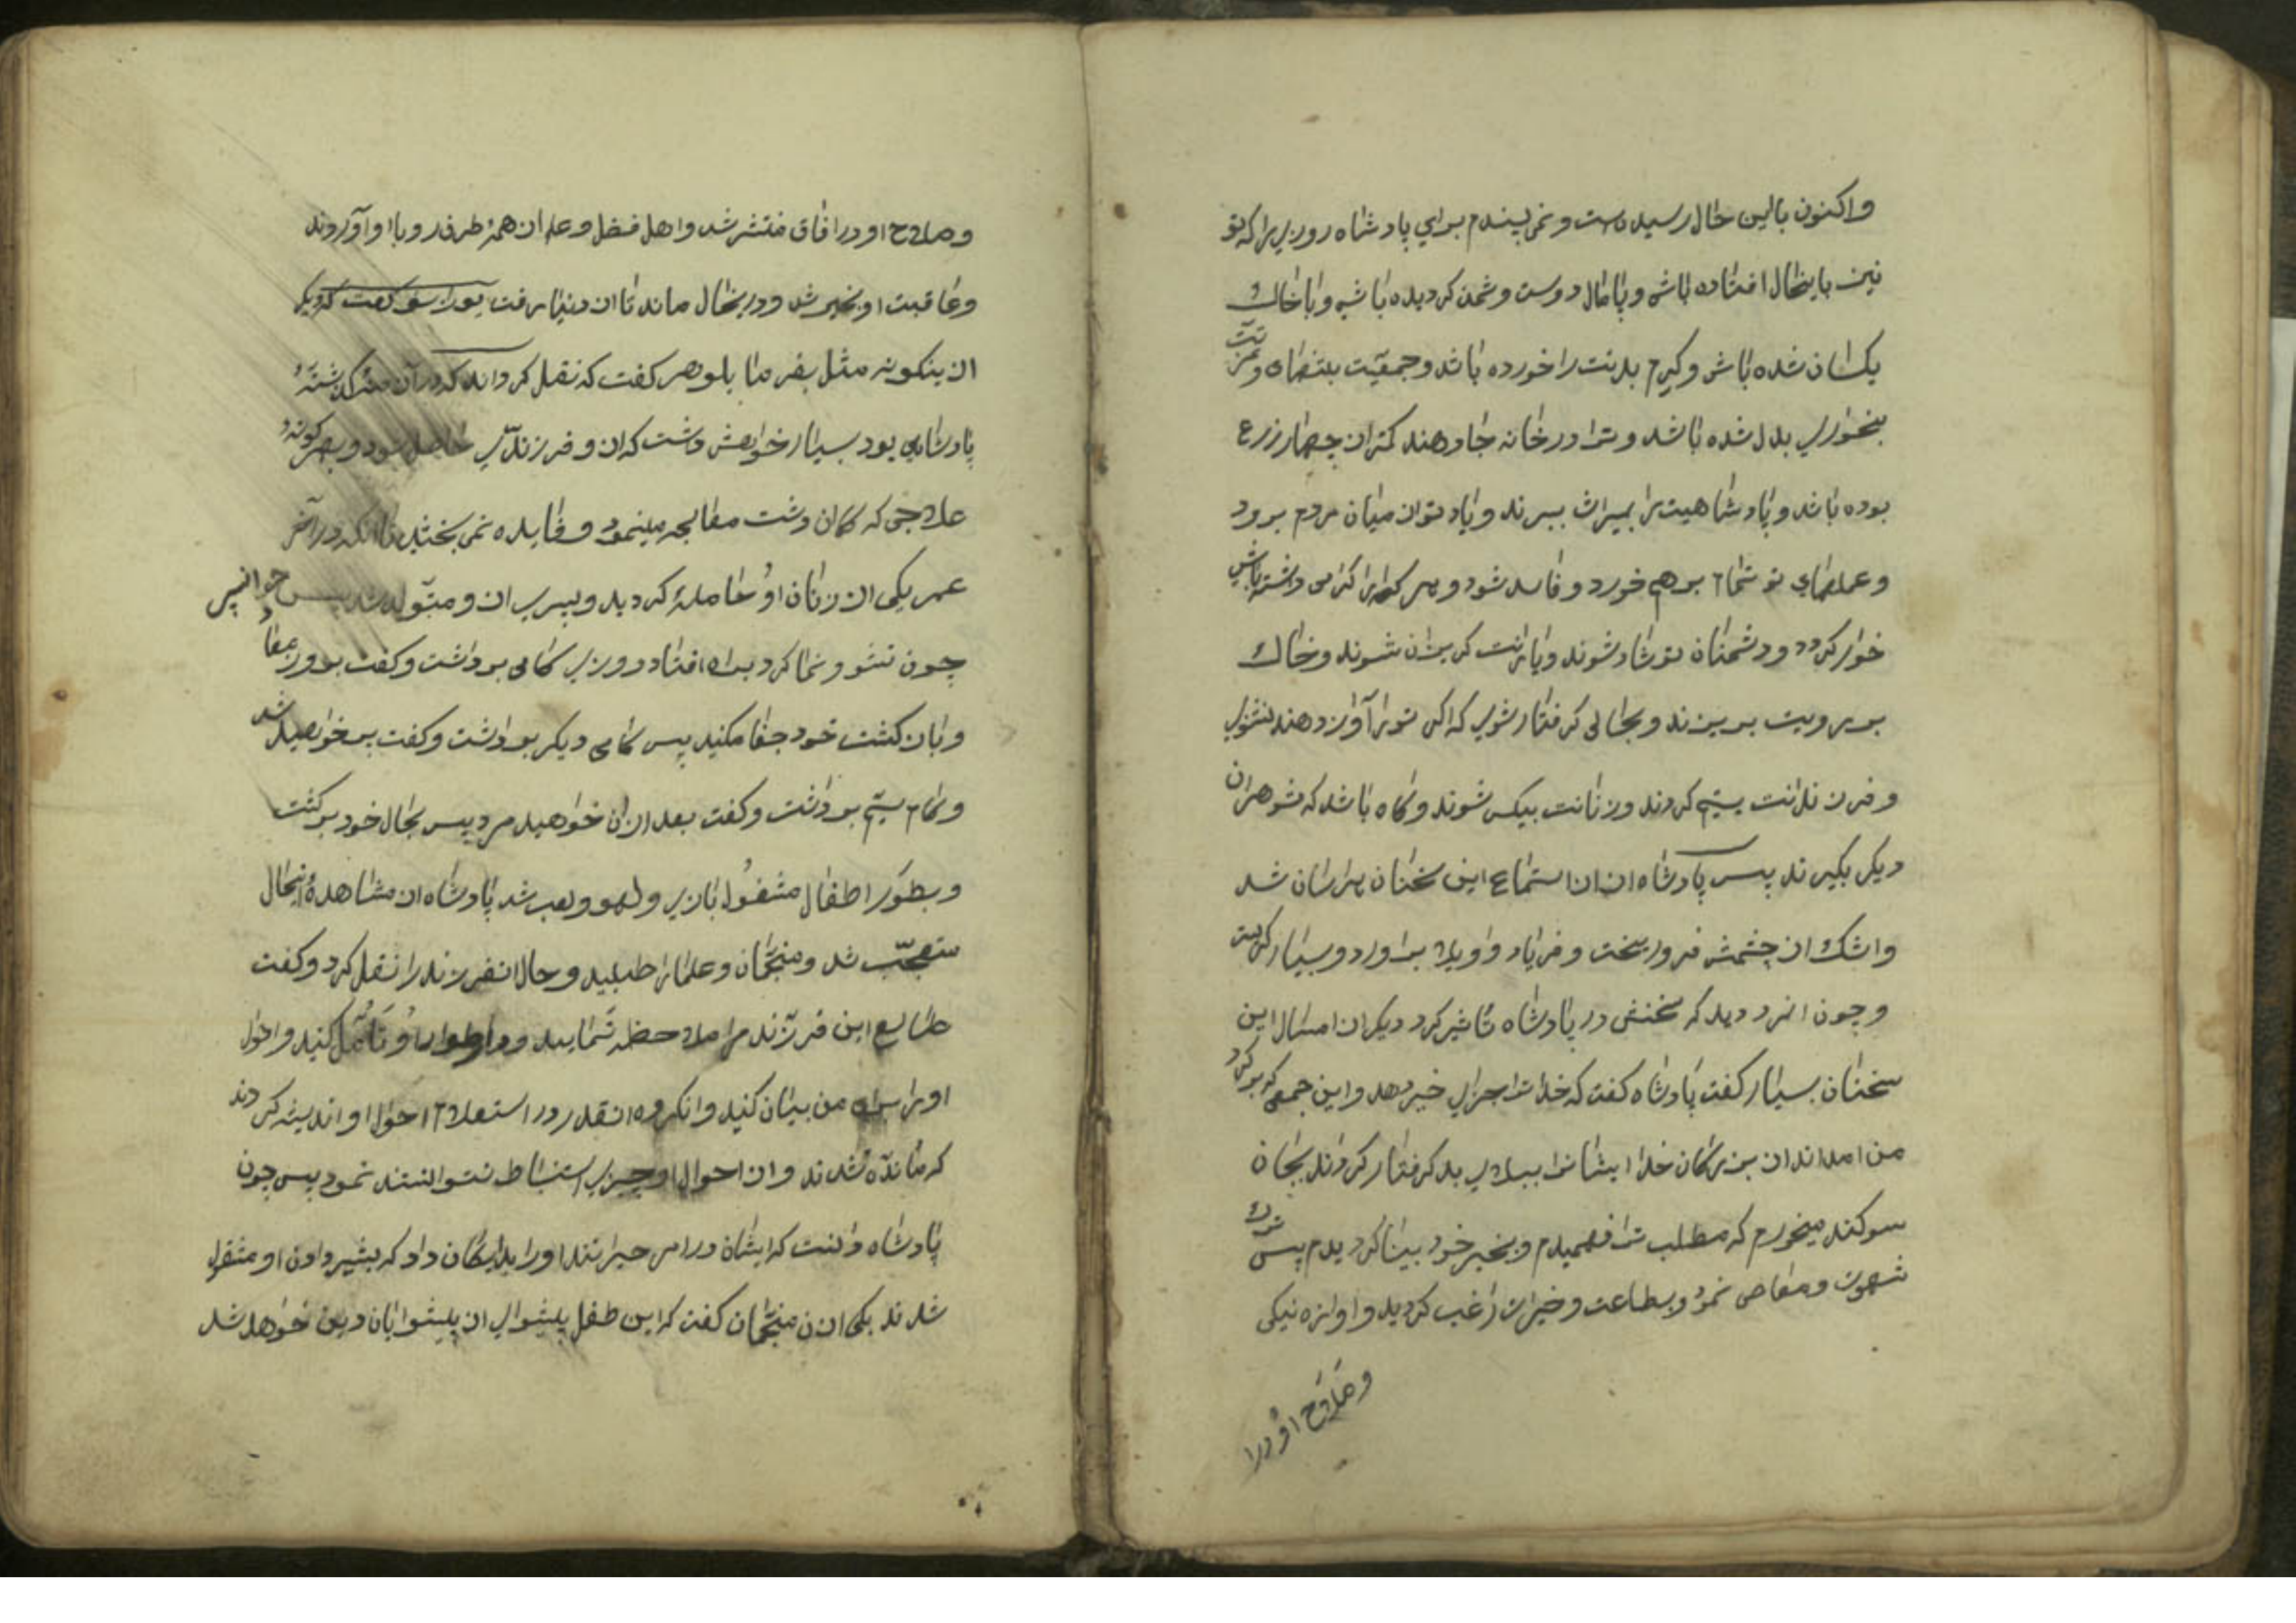 واکنون باین حال رسیده است و نمی پسندم برای پادشاه روزیرا که تو
نیز باینحال افتاده باشی و پامال دوست و دشمن کردیده باشی و با خاک
یکسان شده باشی و کرم بدنت را خورده باشد و جمعیت بتنهائی و عزت
بخواری بدل شده باشد و ترا در خانه جا دهند کمتر از چهار زرع
بوده باشد و پادشاهیت را بمیراث ببرند و یاد تو از میان مردم برود
و عملهای تو تمام برهم خورد و فاسد شود و هر که را کرامی داشته باشی
خوار کردد و دشمنان تو شاد شوند و یارانت کریزان شوند و خاک
بر رویت بریزند و بحالی کرفتار شوی که اکر تو را آواز دهند نشنوی
و فرزندانت یتیم کردند و زنانت بیکس شوند و کاه باشد که شوهران
دیکر بکیرند پس پادشاه از استماع این سخنان هراسان شد
و اشک از چشمش فرو ریخت و فریاد و اویلاه براورد و بسیار کریست
و چون انمرد دید که سخنش در پادشاه تاثیر کرد دیکر از امثال این
سخنان بسیار کفت پادشاه کفت که خدا ترا جزای خیر دهد و این جمعی که بر کرد
من امده‌اند از بزرکان خدا ایشانرا ببلای بد کرفتار کرداند بجان
سوکند میخورم که مطلب ترا فهمیدم و بخیر خود بینا کردیدم پس ترک
شهوت و معاصی نمود و بطاعت و خیرات راغب کردید و اوازه نیکی
وصلاح او درا
وصلاح او در افاق منتشر شد و اهل فضل و علم از همه طرف رو باو آوردند
و عاقبت او بخیر شد و در بحال ماند تا از دنیا رفت یوذاسف کفت که دیکر
از اینکونه مثل بفرما بلوهر کفت که نقل کرده‌اند که در آن منه کذشته
پادشاهی بود بسیار خواهش داشت که از و فرزندی حاصل شود و بهر کونه
علاجی که کمان داشت معالجه مینمود و فایده نمی بخشید تا آنکه در آخر
عمر یکی از زنان او حامله کردید و پسری از و متولد شد پس چو انپسر
چون نشو و نما کرد براه افتاد روزی کامی برداشت و کفت بروز معاد
و باز کشت خود جفا میکنید پس کامی دیکر برداشت و کفت پیر خواهید شد
و کام سیم برداشت و کفت بعد ازان خواهید مرد پس بحال خود برکشت
و بطور اطفال مشغول بازی و لهو و لعب شد پادشاه از مشاهدۀ انحال
متعجب شد و منجمان و علما را طلبید و حال انفرزند را نقل کرد و کفت
طالع این فرزند مرا ملاحظه نمایید و در اطوار او تأمل کنید و احوال
او را برای من بیان کنید و انکروه انقدر در استعلام احوال او اندیشه کردند
که مانده شدند و از احوال او چیزی استنباط نتوانستند نمود پس چون
پادشاه دانست که ایشان در امر حیرانند او را بدایکان داد که بشیر دادن او مشغول
شدند یکی ازن منجمان کفت که این طفل پیشوای از پیشوایان دین خواهد شد